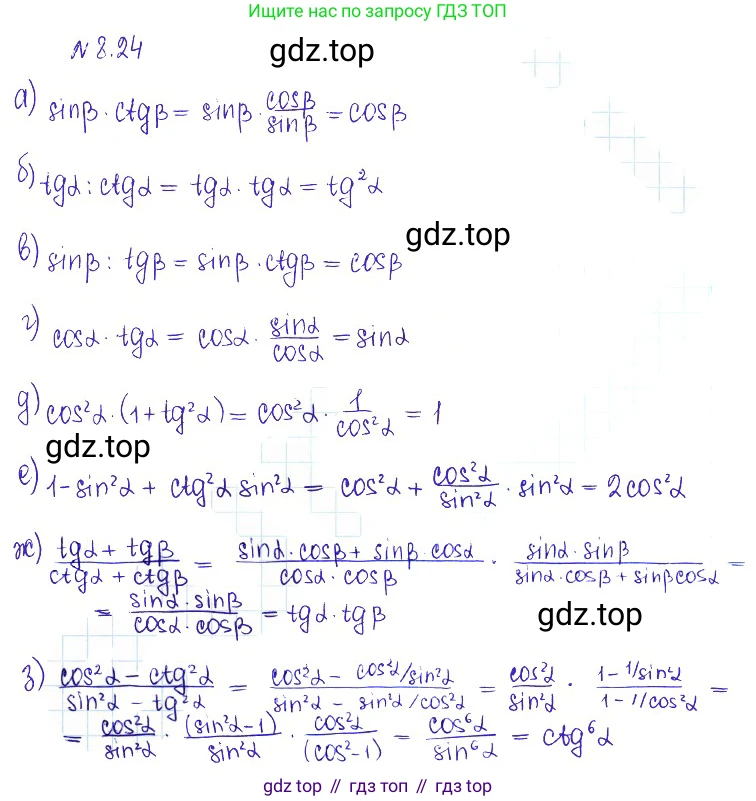 Ищите нас по запросу ГДЗ ТОП
№ 8.24
gdz.top
а) sinβ · ctgβ = sinβ · cosβ/sinβ = cosβ
б) tgα : ctgα = tgα · tgα = tg²α
gdz.top
в) sinβ : tgβ = sinβ · ctgβ = cosβ
г) cosα · tgα = cosα · sinα/cosα = sinα
д) cos²α · (1 + tg²α) = cos²α · 1/cos²α = 1
gdz.top
е) 1 - sin²α + ctg²α sin²α = cos²α + cos²α/sin²α · sin²α = 2cos²α
ж) (tgα + tgβ)/(ctgα + ctgβ) = (sinα · cosβ + sinβ · cosα)/(cosα · cosβ) · (sinα · sinβ)/(sinα · cosβ + sinβ cosα) =
= (sinα · sinβ)/(cosα · cosβ) = tgα · tgβ
gdz.top
з) (cos²α - ctg²α)/(sin²α - tg²α) = (cos²α - cos²α/sin²α)/(sin²α - sin²α/cos²α) = cos²α/sin²α · (1 - 1/sin²α)/(1 - 1/cos²α) =
= cos²α/sin²α · (sin²α - 1)/sin²α · cos²α/(cos² - 1) = cos⁶α/sin⁶α = ctg⁶α
gdz top // гдз топ // гдз top